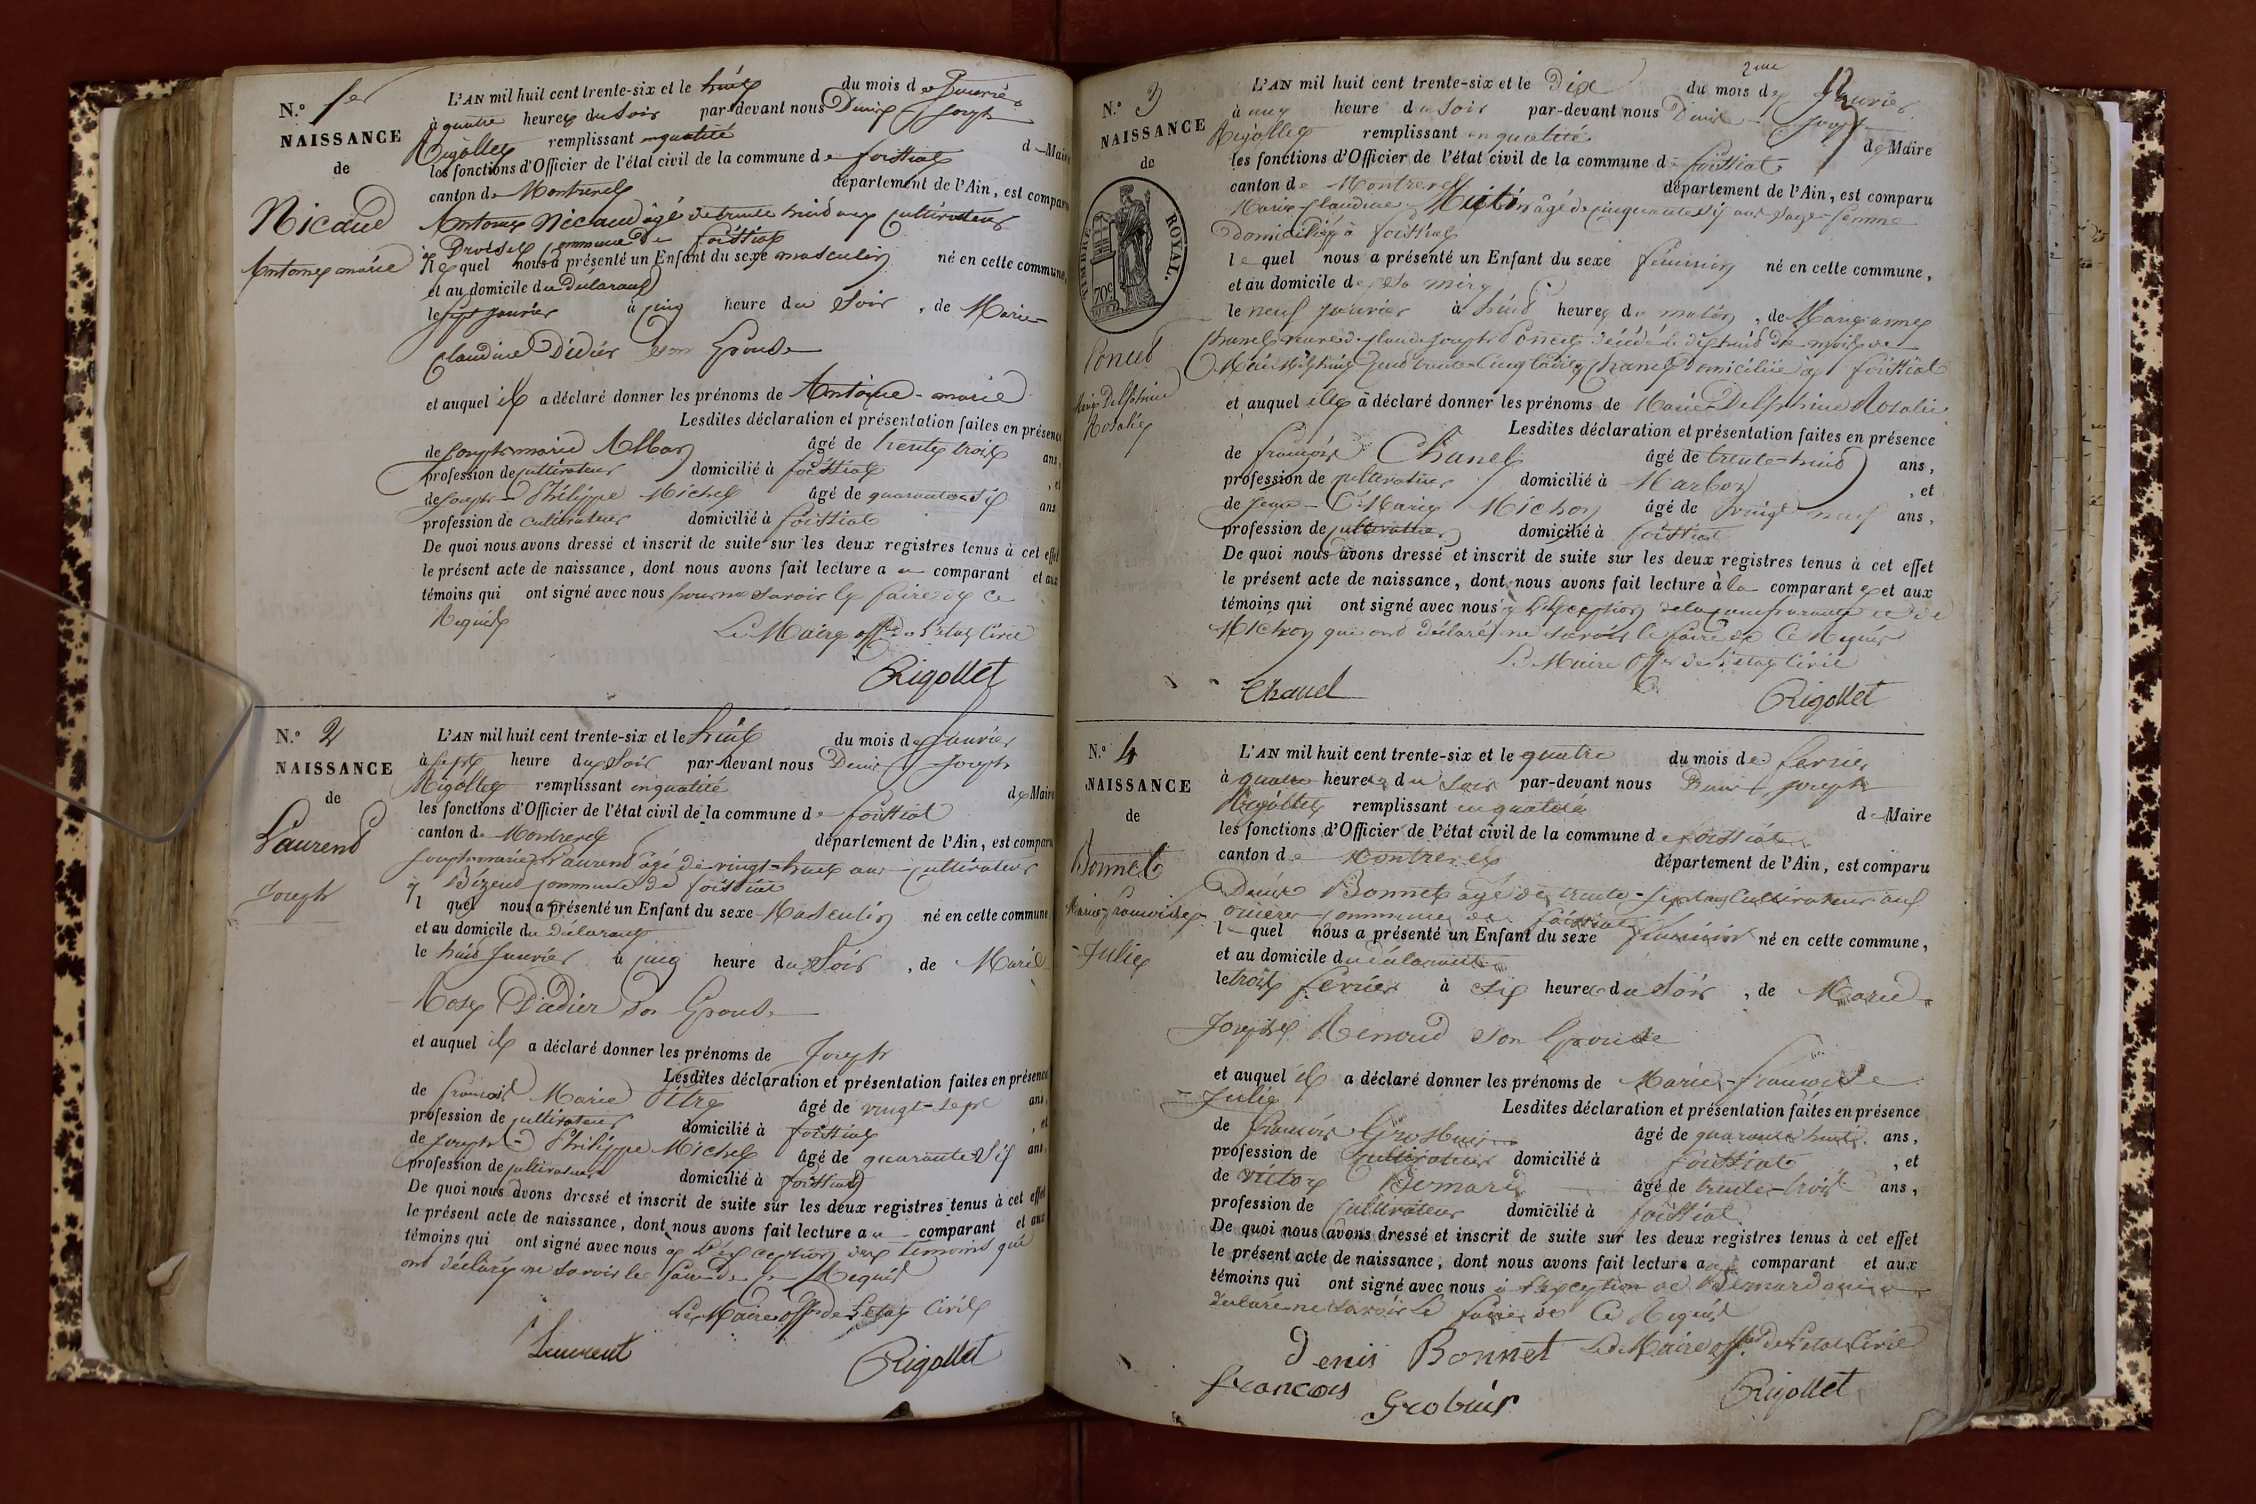 N.º 1er
NAISSANCE
de
Nicaud
Antoine marie
L'AN mil huit cent trente-six et le huit du mois de Janvier
à quatre heures du soir par-devant nous Denis Joseph
Rigollet remplissant en qualité de Maire
les fonctions d'Officier de l'état civil de la commune de foissiat
canton de Montrevel département de l'Ain, est comparu
Antoine Nicaud âgé de trente huit ans cultivateur
commune de foissiat
lequel nous a présenté un Enfant du sexe masculin né en cette commune,
et au domicile du déclarant
le sept janvier à cinq heure du soir, de Marie
Claudine Didier son Epouse
et auquel il a déclaré donner les prénoms de Antoine-marie
Lesdites déclaration et présentation faites en présence
de Joseph marie Alban âgé de trente trois ans,
profession de cultivateur domicilié à foissiat, et
de Joseph-Philippe Michel âgé de quarante six ans
profession de cultivateur domicilié à foissiat
De quoi nous avons dressé et inscrit de suite sur les deux registres tenus à cet effet
le présent acte de naissance, dont nous avons fait lecture au comparant et aux
témoins qui ont signé avec nous pour ne savoir le faire de ce
Requis
Le Maire off. de l'état Civil
Rigollet
N.º 2
NAISSANCE
de
Laurend
Joseph
L'AN mil huit cent trente-six et le huit du mois de Janvier
à sept heure du soir par-devant nous Denis Joseph
Rigollet remplissant en qualité de Maire
les fonctions d'Officier de l'état civil de la commune de foissiat
canton de Montrevel département de l'Ain, est comparu
Joseph marie Laurend âgé de vingt-huit ans cultivateur
commune de foissiat
lequel nous a présenté un Enfant du sexe Masculin né en cette commune
et au domicile du déclarant
le huit Janvier à cinq heure du Soir, de Marie
Rose Didier son Epouse
et auquel il a déclaré donner les prénoms de Joseph
Lesdites déclaration et présentation faites en présence
de francois Marie Pitre âgé de vingt-sept ans,
profession de cultivateur domicilié à foissiat, et
de Joseph-Philippe Michel âgé de quarante Six ans,
profession de cultivateur domicilié à foissiat
De quoi nous avons dressé et inscrit de suite sur les deux registres tenus à cet effet
le présent acte de naissance, dont nous avons fait lecture au comparant et aux
témoins qui ont signé avec nous à l'exception des temoins qui
ont déclaré ne savoir le faire de ce Requis
Le Maire off. de l'état Civil
Laurent
Rigollet
N.º 3
NAISSANCE
de
TIMBRE ROYAL.
70c
Poncet
Marie Delphine
Rosalie
L'AN mil huit cent trente-six et le Dix du mois de Janvier
à une heure du soir par-devant nous Denis Joseph
Rigollet remplissant en qualité de Maire
les fonctions d'Officier de l'état civil de la commune de foissiat
canton de Montrevel département de l'Ain, est comparu
Marie Claudine âgé de cinquante six ans sage-femme
domicilié à foissiat
lequel nous a présenté un Enfant du sexe féminin né en cette commune,
et au domicile de sa mère
le neuf janvier à huit heures du matin, de Marianne
Chanel veuve de Claude Joseph Poncet décédé le dix huit du mois de
Mai Mil huit Cend trente Cinq Chanel Domiciliée à foissiat
et auquel elle a déclaré donner les prénoms de Marie Delphine Rosalie
Lesdites déclaration et présentation faites en présence
de françois Chanel âgé de trente-huit ans,
profession de cultivateur domicilié à Marboz, et
de Jean-Cl. Marie Michon âgé de vingt neuf ans,
profession de cultivateur domicilié à foissiat
De quoi nous avons dressé et inscrit de suite sur les deux registres tenus à cet effet
le présent acte de naissance, dont nous avons fait lecture à la comparante et aux
témoins qui ont signé avec nous à l'exception de la comparante et de
Michon qui ont déclaré ne savoir le faire de Ce Requis
Le Maire Off. de l'état Civil
Chanel
Rigollet
N.º 4
NAISSANCE
de
Bonnet
Marie francoise
-Julie
L'AN mil huit cent trente-six et le quatre du mois de fevrier
à quatre heures du soir par-devant nous Denis Joseph
Rigollet remplissant en qualité de Maire
les fonctions d'Officier de l'état civil de la commune de foissiat
canton de Montrevel département de l'Ain, est comparu
Denis Bonnet âgé de trente-sept ans Cultivateur aux
commune de foissiat
lequel nous a présenté un Enfant du sexe féminin né en cette commune,
et au domicile du déclarant
le trois fevrier à six heure du soir, de Marie
Josephe Renoud son Epouse
et auquel il a déclaré donner les prénoms de Marie-francoise
-Julie
Lesdites déclaration et présentation faites en présence
de francois Grosbuis âgé de quarante huit ans,
profession de Cultivateur domicilié à foissiat, et
de victor Bemard âgé de trente-trois ans,
profession de Cultivateur domicilié à foissiat
De quoi nous avons dressé et inscrit de suite sur les deux registres tenus à cet effet
le présent acte de naissance, dont nous avons fait lecture au comparant et aux
témoins qui ont signé avec nous à l'exception de Bemard qui a
déclaré ne savoir le faire de Ce Requis
Le Maire off. de l'état Civil
Denis Bonnet
francois Grobuis
Rigollet